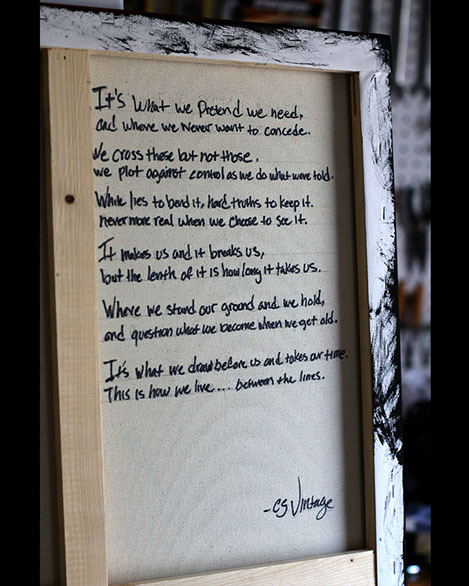 It's what we Pretend we need,
and where we never want to concede.
We cross these but not those,
we plot against control as we do what were told.
While lies to bend it, hard truths to keep it.
never more real when we choose to see it.
It makes us and it breaks us,
but the lenth of it is how long it takes us.
Where we stand our ground and we hold,
and question what we become when we get old.
It's what we draw before us and takes our time.
This is how we live... between the lines.
-CS Vintage